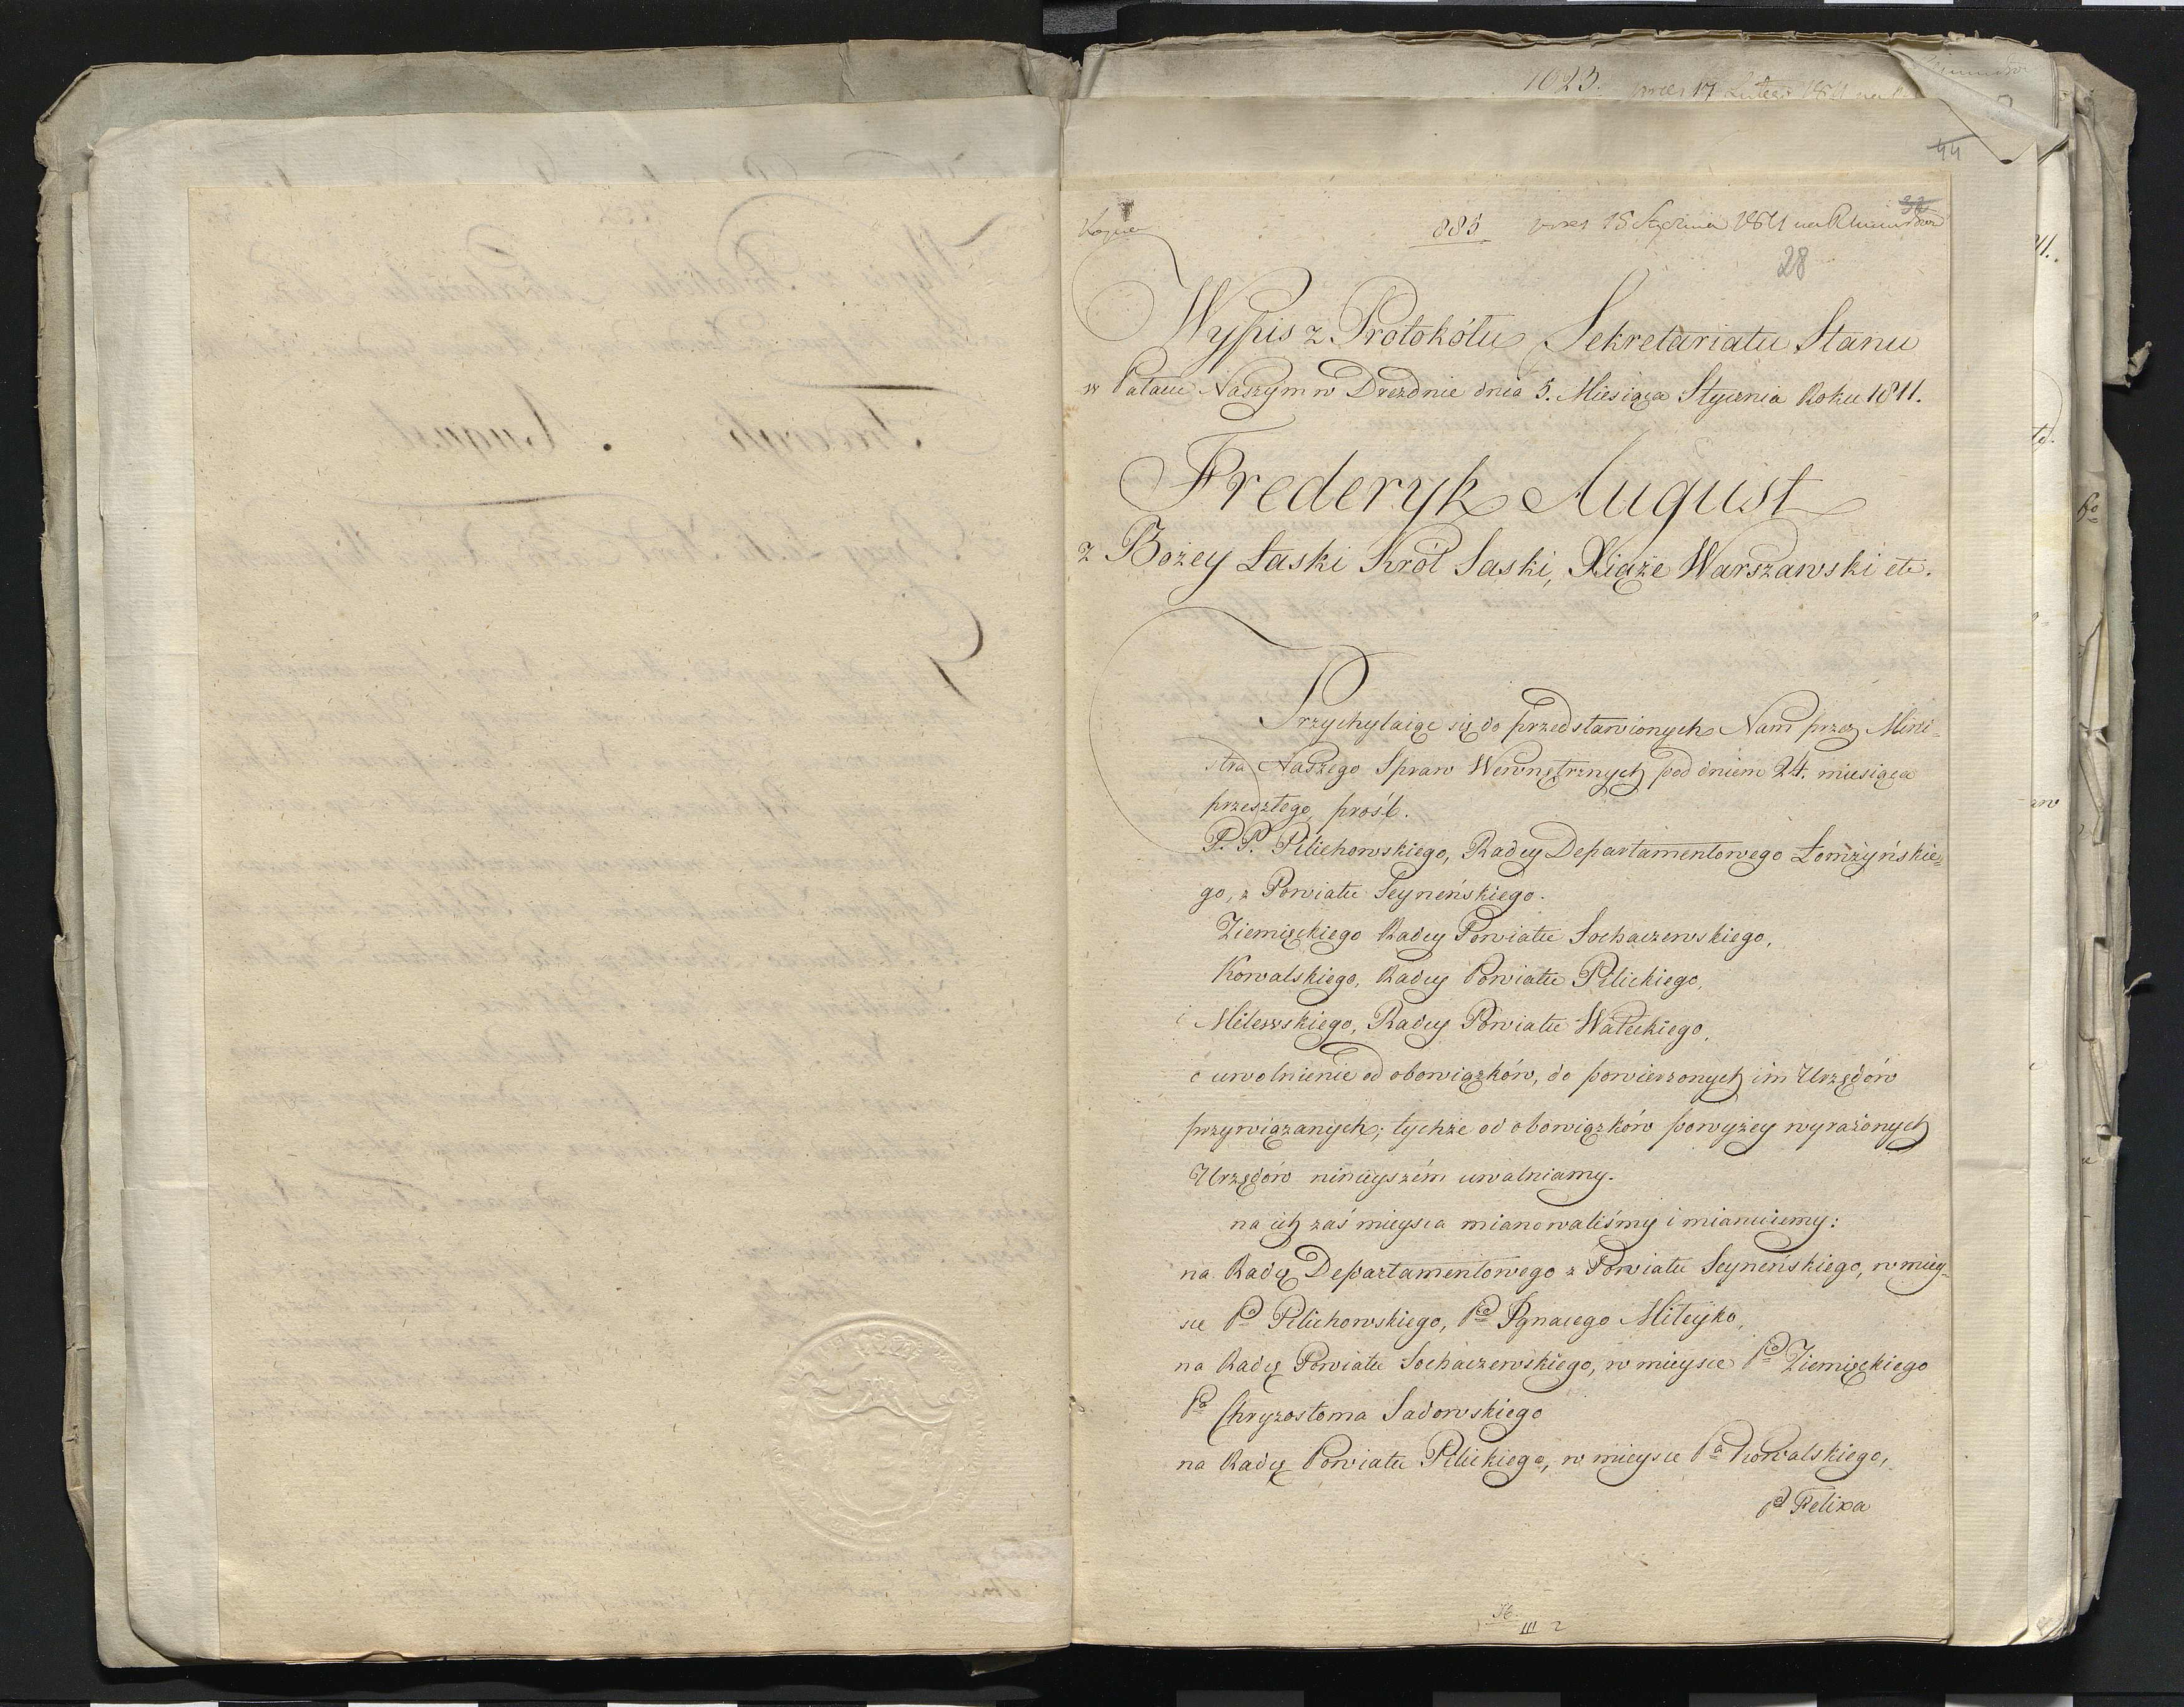 1023. pres 17 Lutego 1811
44
Kopia
885 pres 15 Stycznia 1811
32
28
Wypis z Protokółu Sekretariatu Stanu
w Pałacu Naszym w Dreznie dnia 5. Miesiąca Stycznia Roku 1811.
Frederyk August
z Bożey Łaski Król Saski, Xiąże Warszawski etc.
Przychylaiąc się do przedstawionych Nam przez Mini=
stra Naszego Spraw Wewnętrznych pod dniem 24. miesiąca
przeszłego, prośb.
P. P. Pilichowskiego, Radcy Departamentowego Łomżyńskie=
go, z Powiatu Seyneńskiego.
Ziemięckiego Radcy Powiatu Sochaczewskiego,
Kowalskiego, Radcy Powiatu Pilickiego,
i Milewskiego, Radcy Powiatu Wałeckiego,
o uwolnienie od obowiązków, do powierzonych im Urzędów
przywiązanych; tychże od obowiązków powyżey wyrażonych
Urzędów ninieyszém uwalniamy.
na ich zaś mieysca mianowaliśmy i mianuiemy:
na Radcę Departamentowego z Powiatu Seyneńskiego, w miey=
sce Pa Pilichowskiego, Pa Ignacego Miteyko,
na Radcę Powiatu Sochaczewskiego, w mieysce Pa Ziemięckiego
Pa Chryzostoma Sadowskiego
na Radcę Powiatu Pilickiego, w mieysce Pa Kowalskiego,
Pa Felixa
III 2